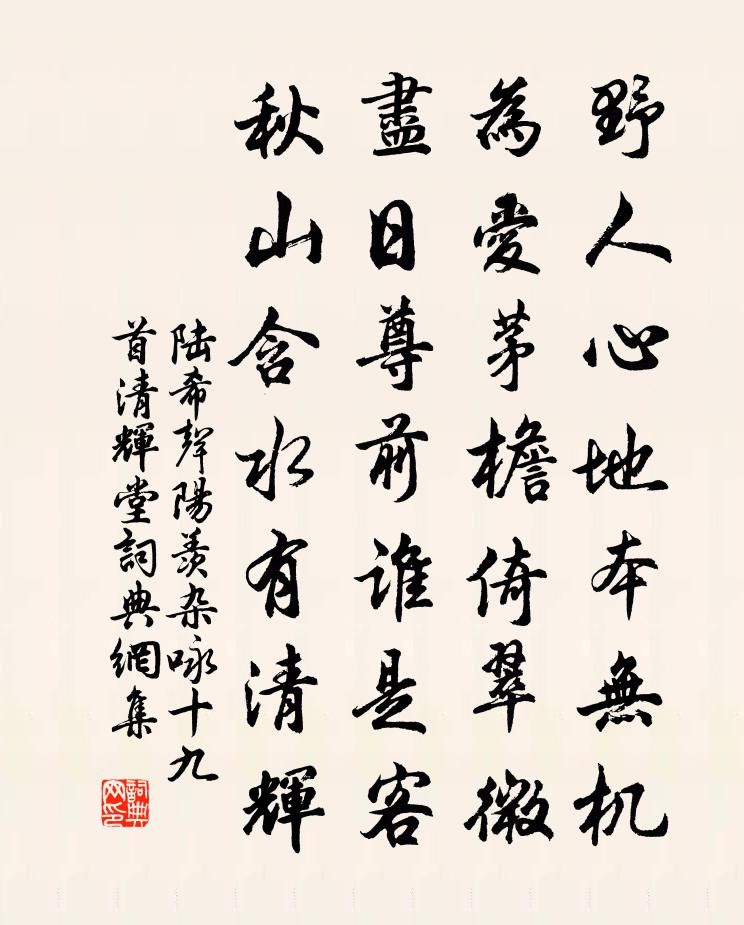 野人心地本無机
為愛茅檐倚翠微
盡日尊前誰是客
秋山含水有清輝
陸希聲陽羨杂咏十九
首清輝堂詞典網集
詞典
网印